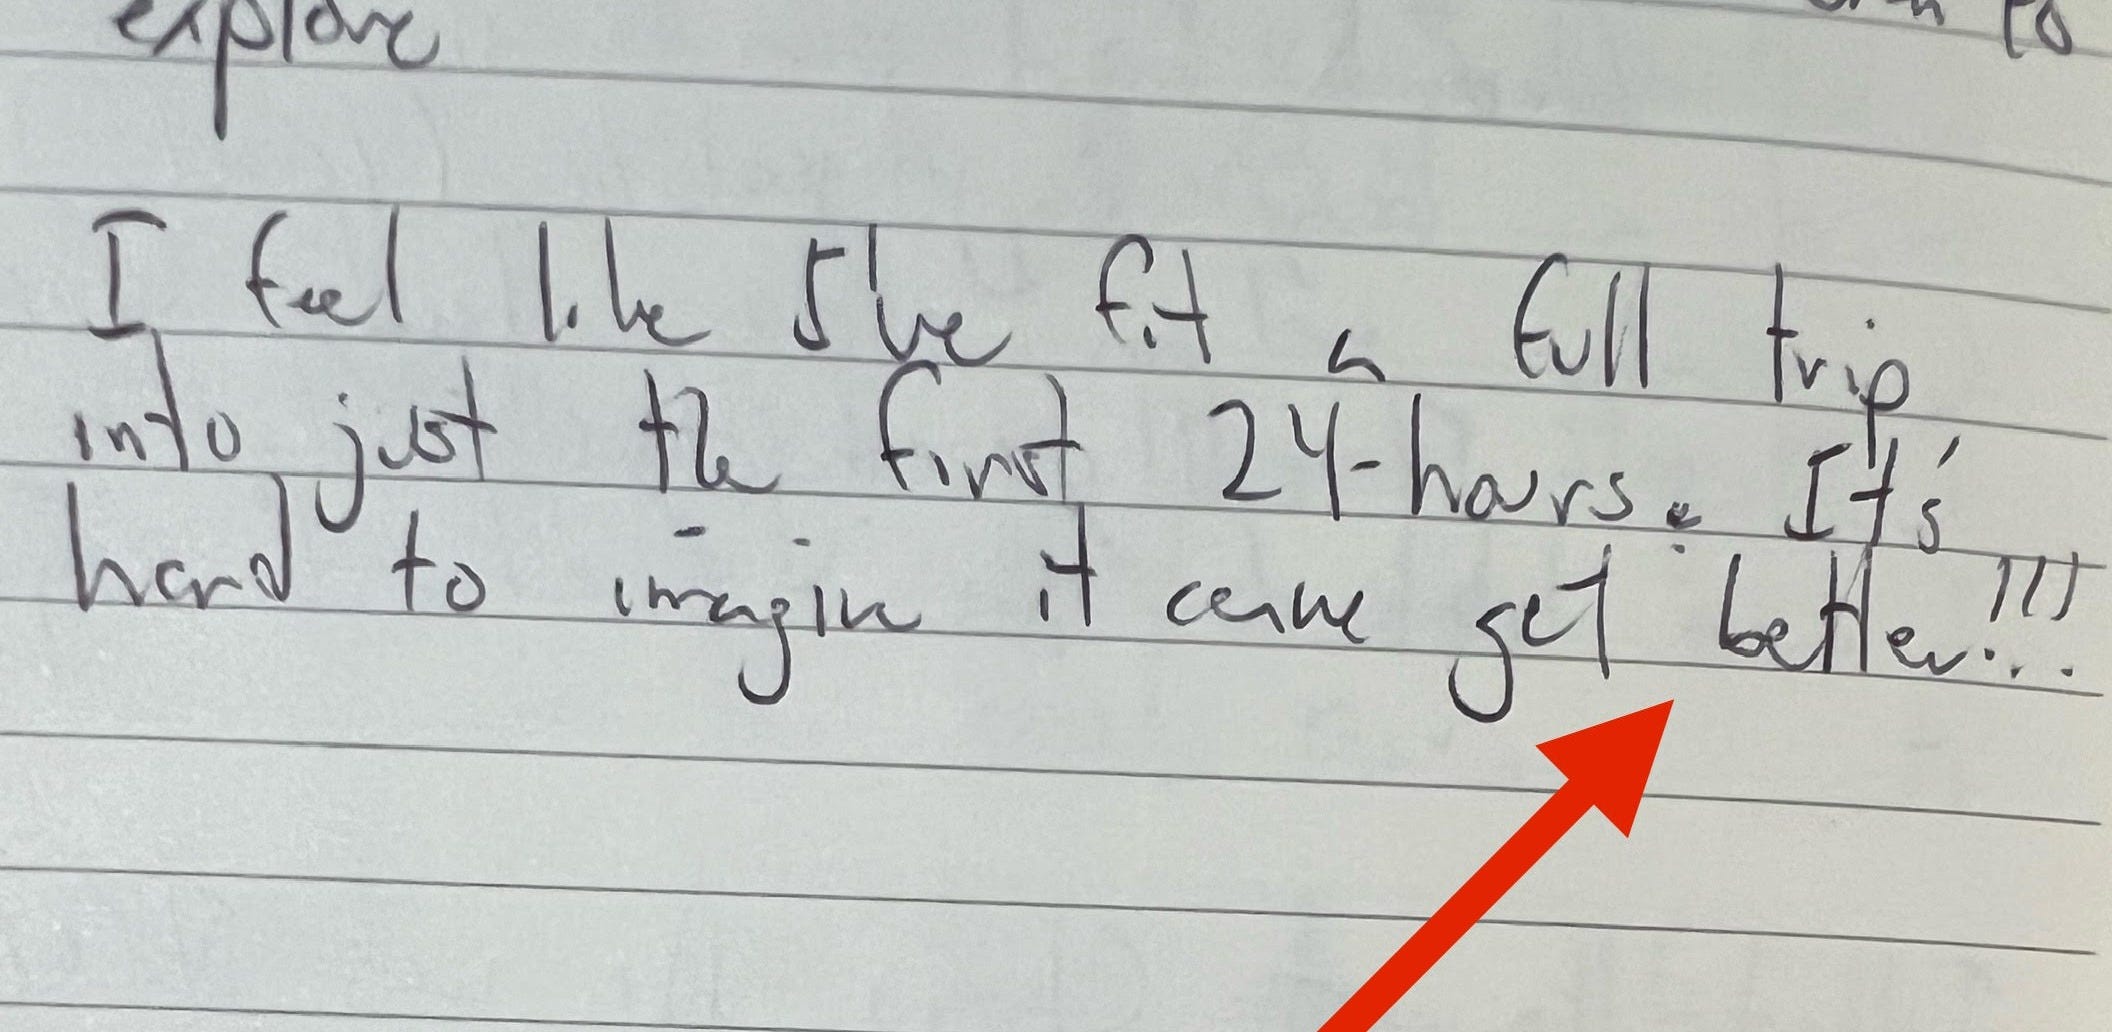 explore to
I feel like I've fit a full trip
into just the first 24-hours. It's
hard to imagine it can get better!!!